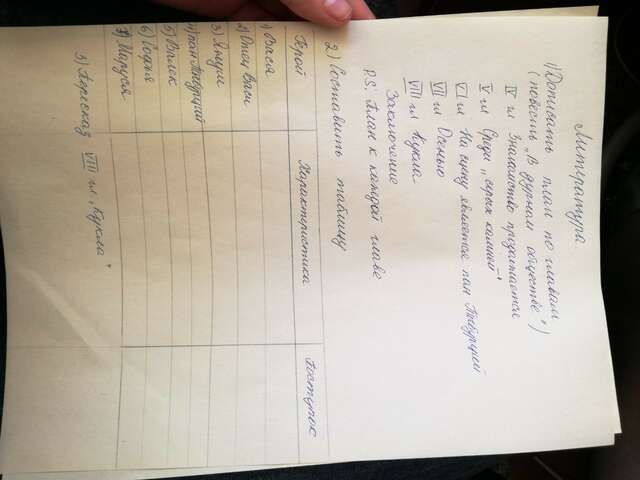 Литература
1) Дописать план по главам
(повесть „В дурном обществе")
IV гл Знакомство продолжается
V гл Среди „серых камней"
VI гл На сцену является пан Тыбурций
VII гл Осенью
VIII гл Кукла
Заключение
P.S. План к каждой главе
2) Составить таблицу
Герой Характеристика Поступок
1) Вася
2) Отец Васи
3) Януш
4) пан Тыбурций
5) Валек
6) Соня
7) Маруся
3) Пересказ VIII гл „Кукла"